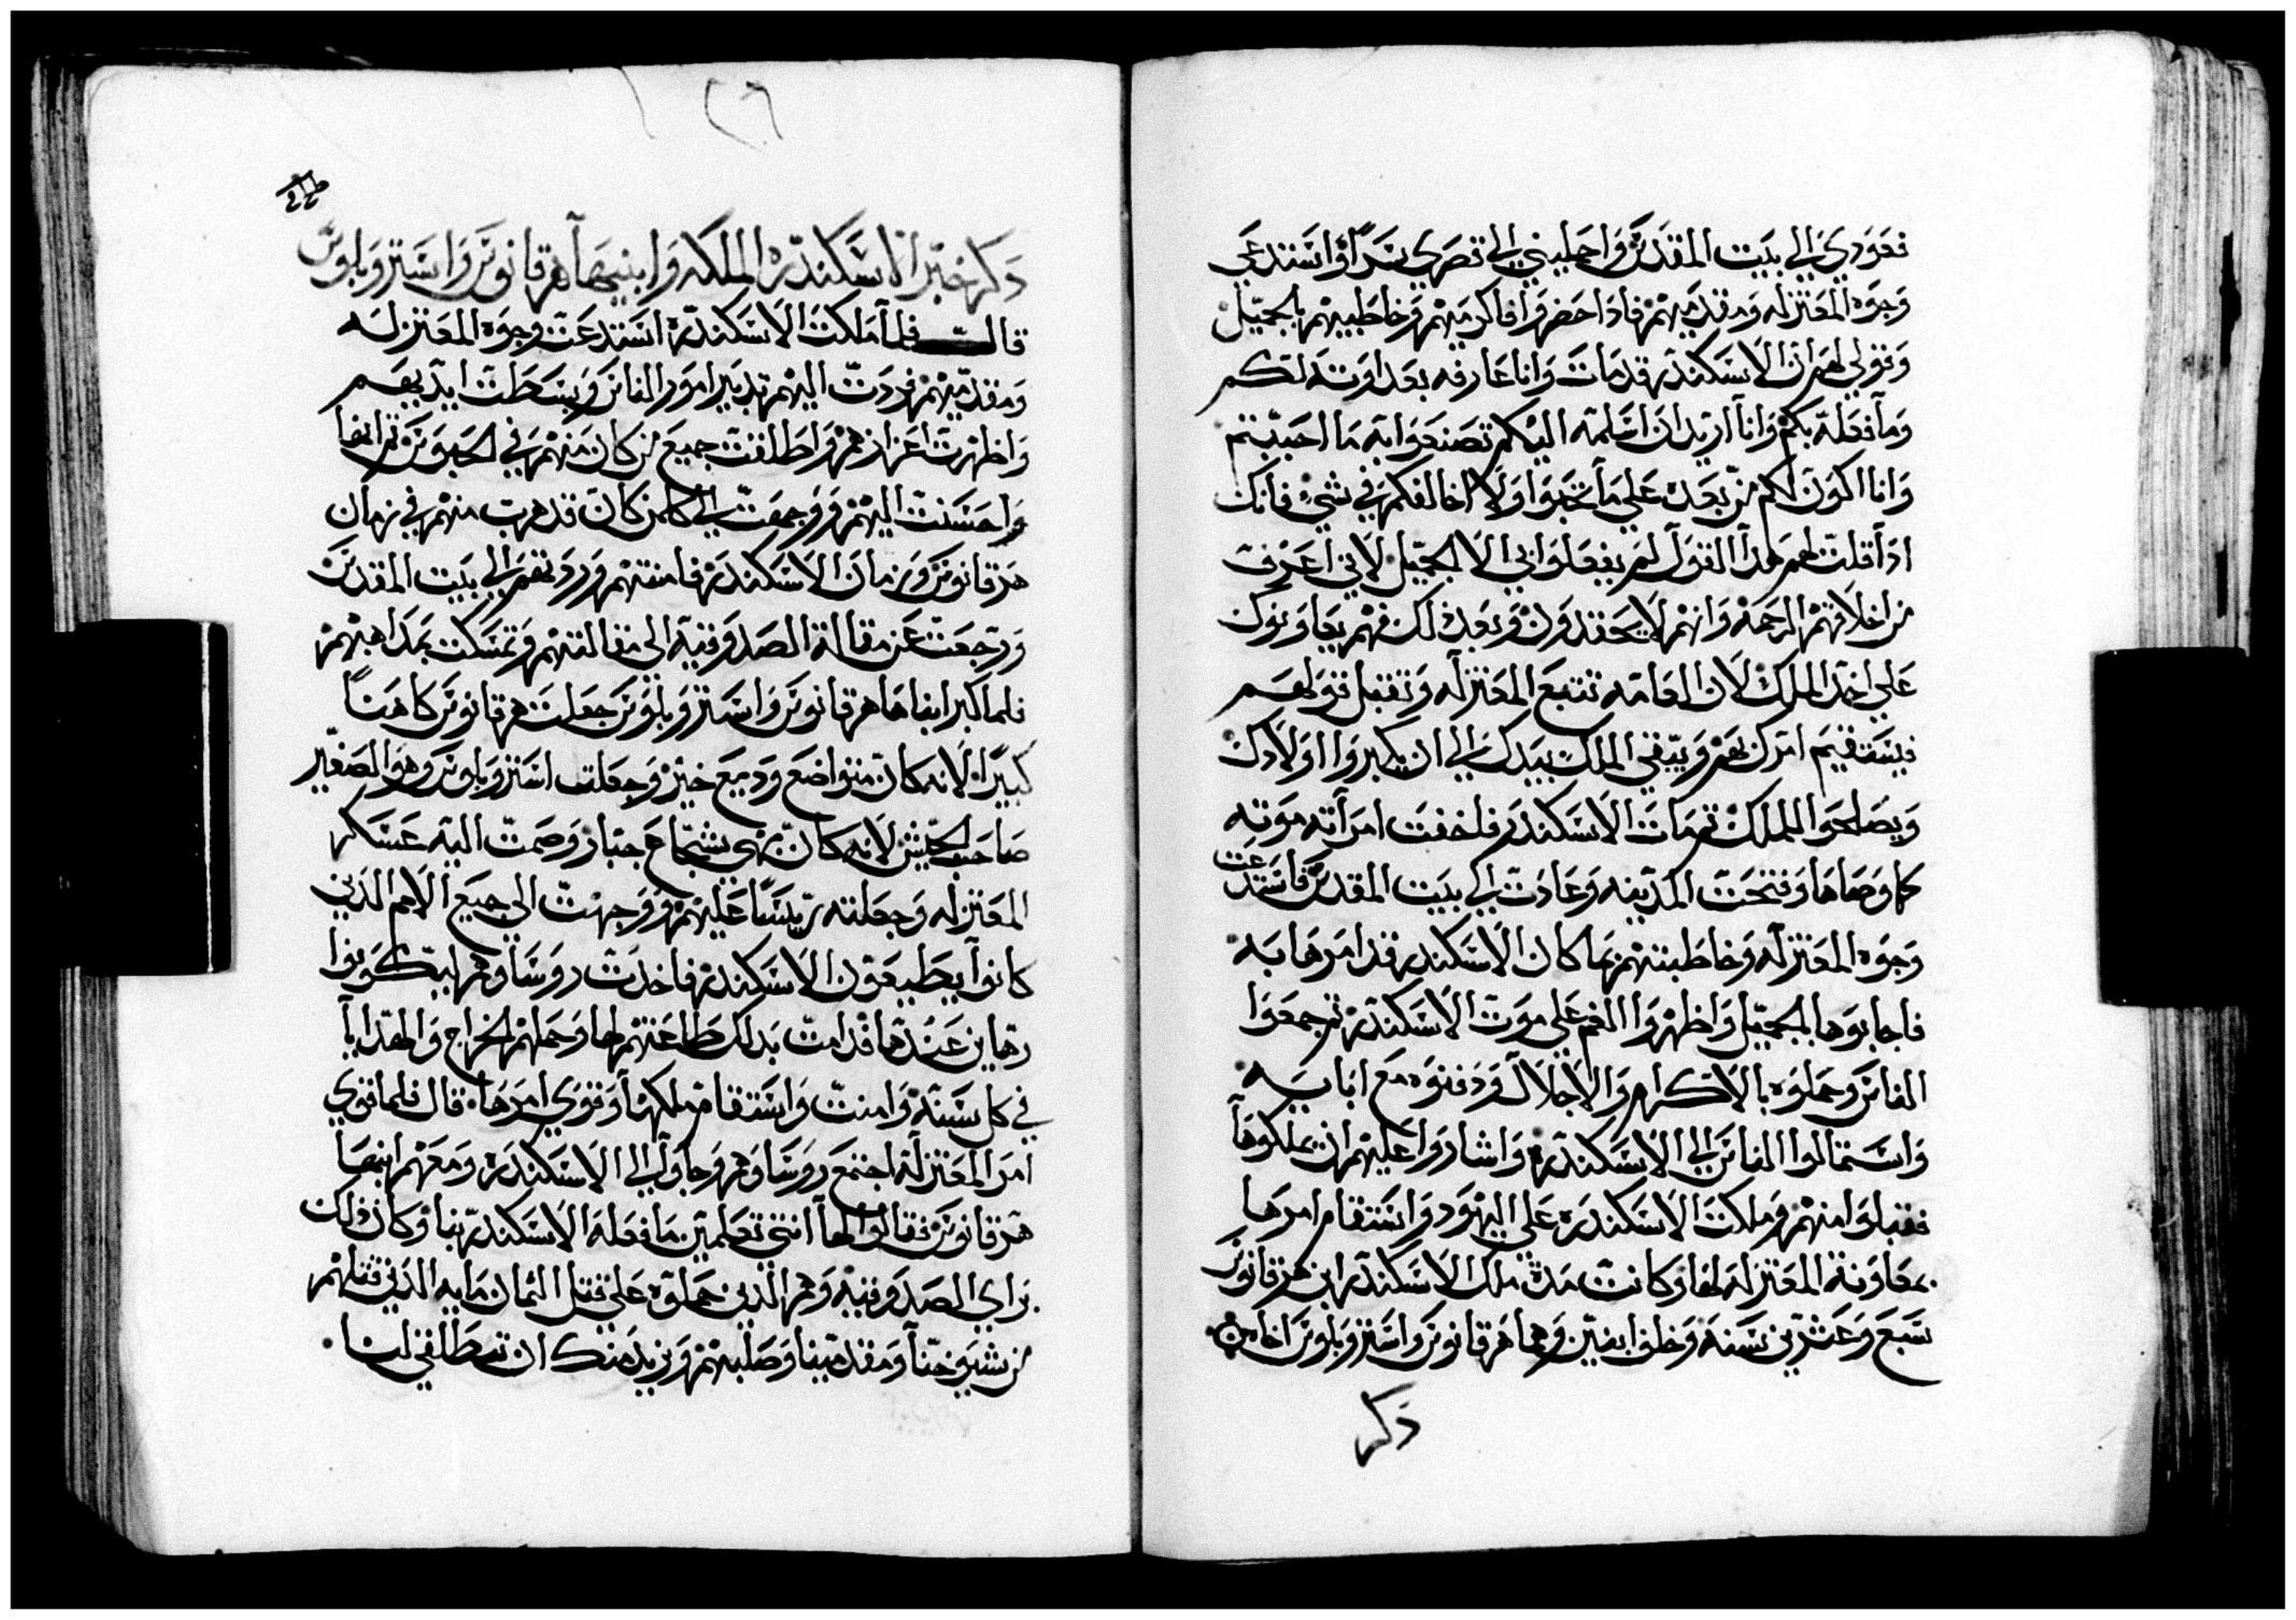 فعودي الي بيت المقدس واحمليني الي قصري سرًا واستدعي
وجوه المعتزله ومقدميهم فاذا حضروا فاكرميهم وخاطبيهم بالجميل
وقولي لهم ان الاسكندر قدمات وانا عارفه بعداوته لكم
وما فعله بكم وانا اريد ان اسلمه اليكم تصنعوا به ما احببتم
وانا اكون لكم من بعده علي ما تحبوا ولا اخالفكم في شي فانك
اذا قلت لهم هدا القول لم يفعلوا بي الا الجميل لاني اعرف
من اخلاقهم الرحمه وانهم لا يحقدون وبعد ذلك فهم يعاونوك
علي اخد الملك لان العامه تتبع المعتزله وتقبل قولهم
فيستقيم امرك بهم ويبقي الملك بيدك الي ان يكبروا اولادك
ويصلحوا للملك ثم مات الاسكندر فلخفت امرأته موته
كما وصاها وفتحت المدينه وعادت الي بيت المقدس فاستدعت
وجوه المعتزله وخاطبتهم بما كان الاسكندر قد امرها به
فاجابوها بالجميل واظهروا الغم علي موت الاسكندر ثم جمعوا
الناس وحملوه بالاكرام والاجلال ودفنوه مع ابايه
واستمالوا الناس الي الاسكندره واشاروا عليهم ان يملكوها
فقبلوا منهم وملكت الاسكندره علي اليهود واستقام امرها
بمعاونة المعتزله لها وكانت مدة ملك الاسكندر ابن هرقانوس
سبع وعشرين سنه وخلف ابنين وهما هرقانوس واستروبلوس اخاه
ذكر
١٢٦
ذكر خبر الاسكندره الملكه وابنيها هرقانوس واستروبلوس
قال فلما ملكت الاسكندره استدعت وجوه المعتزله
ومقدميهم فردت اليهم تدبير امور الناس وبسطت ايديهم
واظهرت اعزازهم واطلقت جميع من كان منهم في الحبوس ثم انها
واحسنت اليهم ووجهت الي كلمن كان قد هرب منهم في زمان
هرقانوس وزمان الاسكندر فامنتهم وردتهم الي بيت المقدس
ورجعت عن مقالة الصدوقيه الي مقالتهم وتمسكت بمداهبهم
فلما كبر ابناها هرقانوس واستروبلوس جعلت هرقانوس كاهنًا
كبيرًا لانه كان متواضع وديع خير وجعلت استروبلوس وهو الصغير
صاحب الجيش لانه كان بهي شجاع جبار وضمت اليه عسكر
المعتزله وجعلته رييسًا عليهم ووجهت الي جميع الامم الدين
كانوا يطيعون الاسكندر فاخدت روساوهم ليكونوا
رهاين عندها فدامت بدلك طاعتهم لها وحملهم الخراج والهدايا
في كل سنة وامنت واستقام ملكها وقوي امرها قال فلما قوي
امر المعتزله اجتمع روساوهم وجاوا الي الاسكندره ومعهم ابنها
هرقانوس فقالوا لها انتي تعلمين ما فعله الاسكندر بنا وكان ذلك
براي الصدوقيه وهم الدين حملوه علي قتل الثمان مايه الدين قتلهم
من شيوخنا ومقدمينا وصلبهم ونريد منك ان تطلقي لنا